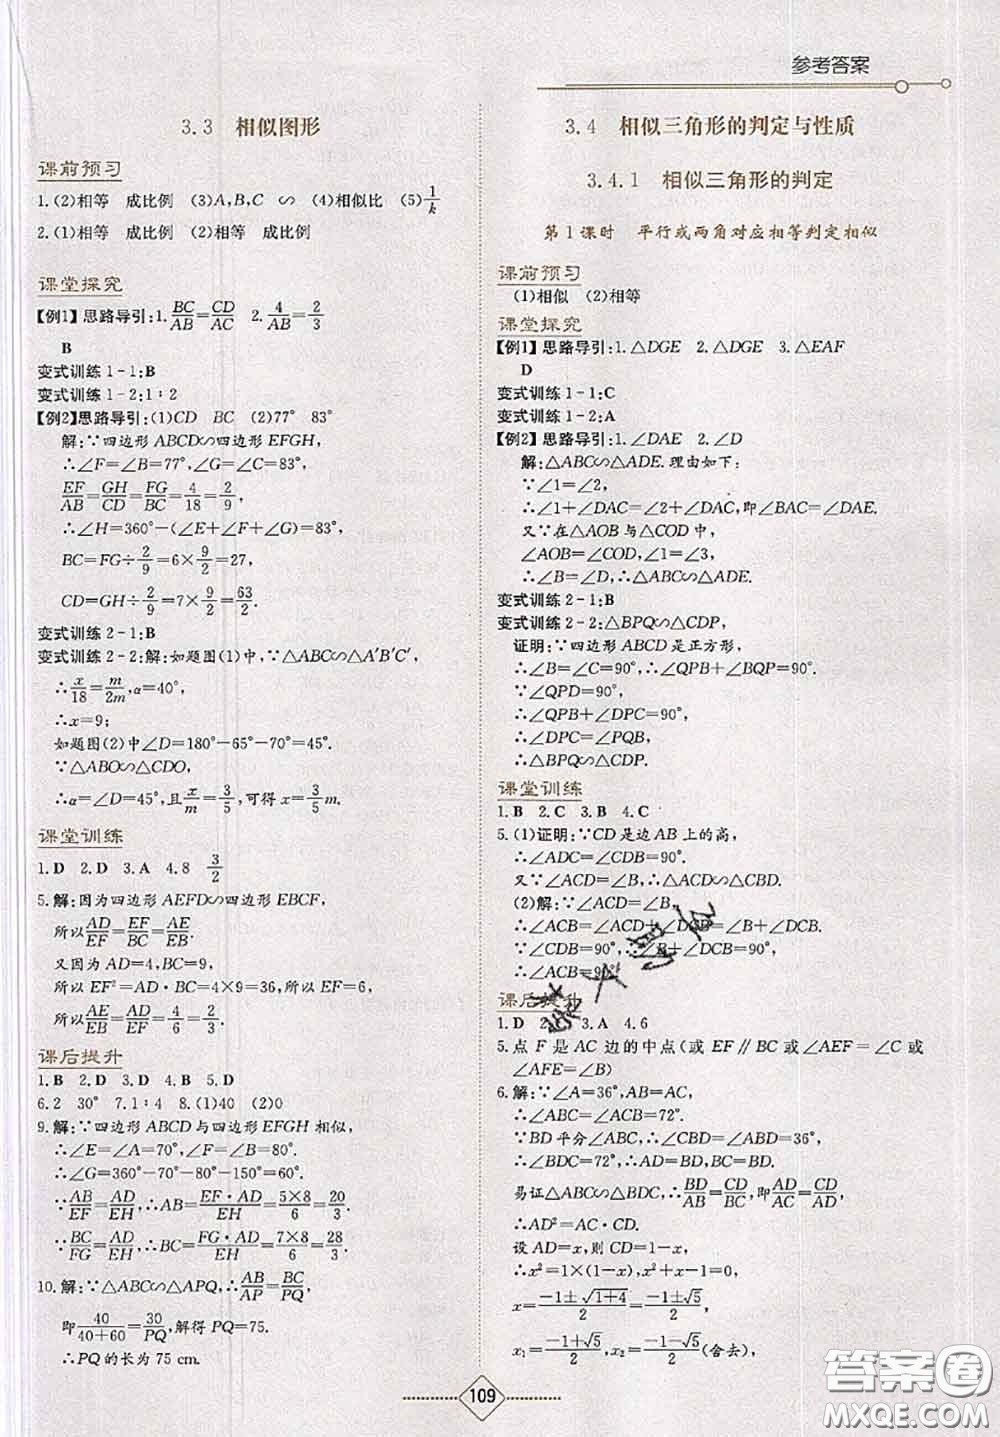 参考答案
3.3 相似图形
课前预习
1.(2)相等 成比例 (3)A,B,C ∽ (4)相似比 (5)1/k
2.(1)相等 成比例 (2)相等 成比例
课堂探究
【例1】思路导引:1.BC/AB=CD/AC 2.4/AB=2/3
B
变式训练1-1:B
变式训练1-2:1∶2
【例2】思路导引:(1)CD BC (2)77° 83°
解:∵四边形ABCD∽四边形EFGH,
∴∠F=∠B=77°,∠G=∠C=83°,
EF/AB=GH/CD=FG/BC=4/18=2/9,
∴∠H=360°-(∠E+∠F+∠G)=83°,
BC=FG÷2/9=6×9/2=27,
CD=GH÷2/9=7×9/2=63/2.
变式训练2-1:B
变式训练2-2:解:如题图(1)中,∵△ABC∽△A'B'C',
∴x/18=m/2m,α=40°,
∴x=9;
如题图(2)中∠D=180°-65°-70°=45°.
∵△ABO∽△CDO,
∴α=∠D=45°,且x/m=3/5,可得x=3/5m.
课堂训练
1.D 2.D 3.A 4.8 3/2
5.解:因为四边形AEFD∽四边形EBCF,
所以AD/EF=EF/BC=AE/EB.
又因为AD=4,BC=9,
所以EF²=AD·BC=4×9=36,所以EF=6,
所以AE/EB=AD/EF=4/6=2/3.
课后提升
1.B 2.D 3.D 4.B 5.D
6.2 30° 7.1∶4 8.(1)40 (2)0
9.解:∵四边形ABCD与四边形EFGH相似,
∴∠E=∠A=70°,∠F=∠B=80°.
∴∠G=360°-70°-80°-150°=60°.
∵AB/EF=AD/EH,∴AB=EF·AD/EH=5×8/6=20/3.
∵BC/FG=AD/EH,∴BC=FG·AD/EH=7×8/6=28/3.
10.解:∵△ABC∽△APQ,∴AB/AP=BC/PQ,
即40/40+60=30/PQ,解得PQ=75.
∴PQ的长为75 cm.
3.4 相似三角形的判定与性质
3.4.1 相似三角形的判定
第1课时 平行或两角对应相等判定相似
课前预习
(1)相似 (2)相等
课堂探究
【例1】思路导引:1.△DGE 2.△DGE 3.△EAF
D
变式训练1-1:C
变式训练1-2:A
【例2】思路导引:1.∠DAE 2.∠D
解:△ABC∽△ADE.理由如下:
∵∠1=∠2,
∴∠1+∠DAC=∠2+∠DAC,即∠BAC=∠DAE.
又∵在△AOB与△COD中,
∠AOB=∠COD,∠1=∠3,
∴∠B=∠D,∴△ABC∽△ADE.
变式训练2-1:B
变式训练2-2:△BPQ∽△CDP,
证明:∵四边形ABCD是正方形,
∴∠B=∠C=90°,∴∠QPB+∠BQP=90°.
∵∠QPD=90°,
∴∠QPB+∠DPC=90°,
∴∠DPC=∠PQB,
∴△BPQ∽△CDP.
课堂训练
1.B 2.C 3.B 4.C
5.(1)证明:∵CD是边AB上的高,
∴∠ADC=∠CDB=90°.
又∵∠ACD=∠B,∴△ACD∽△CBD.
(2)解:∵∠ACD=∠B,
∴∠ACB=∠ACD+∠DCB=∠B+∠DCB.
∵∠CDB=90°,∴∠B+∠DCB=90°,
∴∠ACB=90°.
课后提升
1.D 3.A 4.6
5.点F是AC边的中点(或EF∥BC或∠AEF=∠C或
∠AFE=∠B)
6.解:∵∠A=36°,AB=AC,
∴∠ABC=∠ACB=72°.
∵BD平分∠ABC,∴∠CBD=∠ABD=36°,
∠BDC=72°,∴AD=BD,BC=BD.
易证△ABC∽△BDC,∴BD/AB=CD/BC,即AD/AC=CD/AD,
∴AD²=AC·CD.
设AD=x,则CD=1-x,
∴x²=1×(1-x),x²+x-1=0,
x=-1±√1+4/2=-1±√5/2,
x₁=-1+√5/2,x₂=-1-√5/2(舍去),
109
答案圈
MXQE.COM